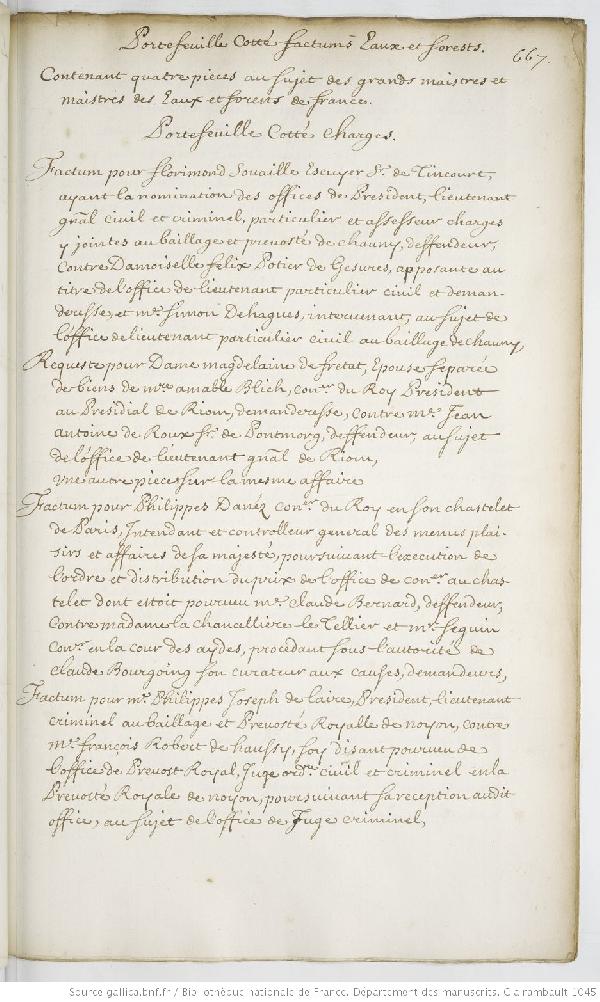 Portefeuille Cotté factums Eaux et forests.
667.
Contenant quatre pieces au sujet des grands maistres et
maistres des Eaux et forests de france.
Portefeuille Cotté Charges.
Factum pour florimond Souaille Escuyer Sr. de Tincourt,
ayant la nomination des offices de President, lieutenant
gnãl civil et criminel, particulier et assesseur charges
y jointes au baillage et prevosté de chauny, deffendeur,
Contre Damoiselle felix Potier de Gesures, opposante au
titre de l'office de lieutenant particulier civil et deman-
deresse, et mre. Simon Dehagues, intervenant, au sujet de
l'office de lieutenant particulier civil au baillage de chauny,
Requeste pour Dame magdelaine de fretat, Epouse separée
de biens de mre amable Blich, coner. du Roy President
au Presidial de Riom, demanderesse, contre mre. Jean
antoine de Roux Sr. de Pontmorg, deffendeur, au sujet
de l'office de lieutenant gnãl de Riom,
une autre piece sur la mesme affaire
Factum pour Philippes Danéz coner. du Roy en son chastelet
de Paris, Intendant et controlleur general des menus plai-
sirs et affaires de sa majesté, poursuivant l'execution de
l'ordre et distribution du prix de l'office de coner. au chas-
telet dont estoit pourvu mre. Claude Bernard, deffendeur,
Contre madame la chancelliere le Tellier et mre. Seguin
coner. en la cour des aydes, procedant sous l'autorité de
Claude Bourgoing son curateur aux causes, demandeurs,
Factum pour mre. Philippes Joseph de laire, President, lieutenant
criminel au baillage et Prevosté Royalle de noyon, contre
mre. françois Robert de haussy, soy disant pourvu de
l'office de Prevost Royal, Juge ordre. civil et criminel en la
Prevosté Royale de noyon, poursuivant sa reception audit
office, au sujet de l'office de Juge criminel,
Source gallica.bnf.fr / Bibliothèque nationale de France. Département des manuscrits. Clairambault 1045